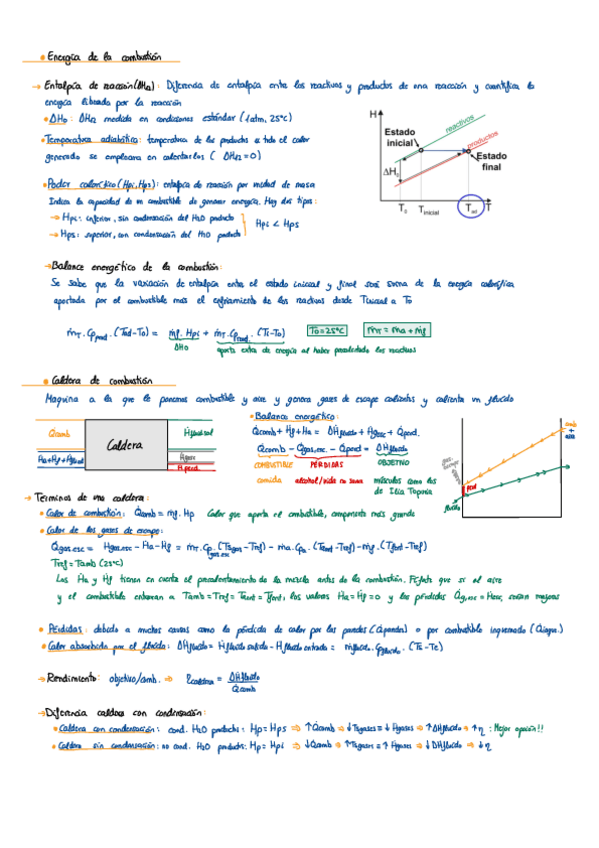 • Energía de la combustión
→ Entalpía de reacción (ΔHR): Diferencia de entalpía entre los reactivos y productos de una reacción y cuantifica la
energía liberada por la reacción
• ΔH0: ΔHR medida en condiciones estándar (1atm, 25ºC)
• Temperatura adiabática: temperatura de los productos si todo el calor
generado se empleara en calentarlos (ΔHR=0)
• Poder calorífico (Hpi, Hps): entalpía de reacción por unidad de masa
Indica la capacidad de un combustible de generar energía. Hay dos tipos:
→ Hpi: inferior, sin condensación del H2O producto
→ Hps: superior, con condensación del H2O producto
Hpi < Hps
H
reactivos
productos
Estado
inicial
Estado
final
ΔH0
T0 Tinicial Tad T
→ Balance energético de la combustión:
Se sabe que la variación de entalpía entre el estado inicial y final será suma de la energía calorífica
aportada por el combustible más el enfriamiento de los reactivos desde Tinicial a T0
ṁT · Cpprod · (Tad-T0) = ṁf · Hpi + ṁT · Cpprod · (Ti-T0)
T0=25ºC
ṁT = ṁa + ṁf
ΔH0
aporte extra de energía al haber precalentado los reactivos
• Caldera de combustión
Maquina a la que le ponemos combustible y aire y genera gases de escape calientes y calienta un fluido
Q̇comb
Ha+Hf+Hfluido
Caldera
Hfluido sal
Hgesc
Hperd
• Balance energético:
Q̇comb + Hf + Ha = ΔHfluido + Hgesc + Q̇perd
Q̇comb - Q̇gas,esc - Q̇perd = ΔHfluido
COMBUSTIBLE PÉRDIDAS OBJETIVO
comida
músculos como los
de Ilia Topuria
fluido
→ Terminos de una caldera:
• Calor de combustión: Q̇comb = ṁf · Hp Calor que aporta el combustible, componente más grande
• Calor de los gases de escape:
Q̇gas,esc = Hgas,esc - Ha - Hf = ṁT · Cpgas,esc · (Tsgas - Tref) - ṁa · Cpa · (Taent - Tref) - ṁf · (Tfent - Tref)
Tref = Tamb (25ºC)
Los Ha y Hf tienen en cuenta el precalentamiento de la mezcla antes de la combustión. Fíjate que si el aire
y el combustible entraran a Tamb = Tref = Taent = Tfent, los valores Ha = Hf = 0 y las pérdidas Q̇g,esc = Hesc, serían mayores
• Pérdidas: debido a muchas causas como la pérdida de calor por las paredes (Q̇paredes) o por combustible inquemado (Q̇inqu.)
• Calor absorbido por el fluido: ΔHfluido = Hfluido salida - Hfluido entrada = ṁfluido · Cpfluido · (Ts - Te)
→ Rendimiento: objetivo/comb. ⇒ ηcaldera = ΔHfluido / Q̇comb
→ Diferencia calderas con condensación:
• Caldera con condensación: cond. H2O producto: Hp = Hps ⇒ ↑Q̇comb → ↓Tsgases ≡ ↓Hgases → ↑ΔHfluido → ↑η : Mejor opción!!
• Caldera sin condensación: no cond. H2O producto: Hp = Hpi ⇒ ↓Q̇comb → ↑Tsgases ≡ ↑Hgases → ↓ΔHfluido → ↓η